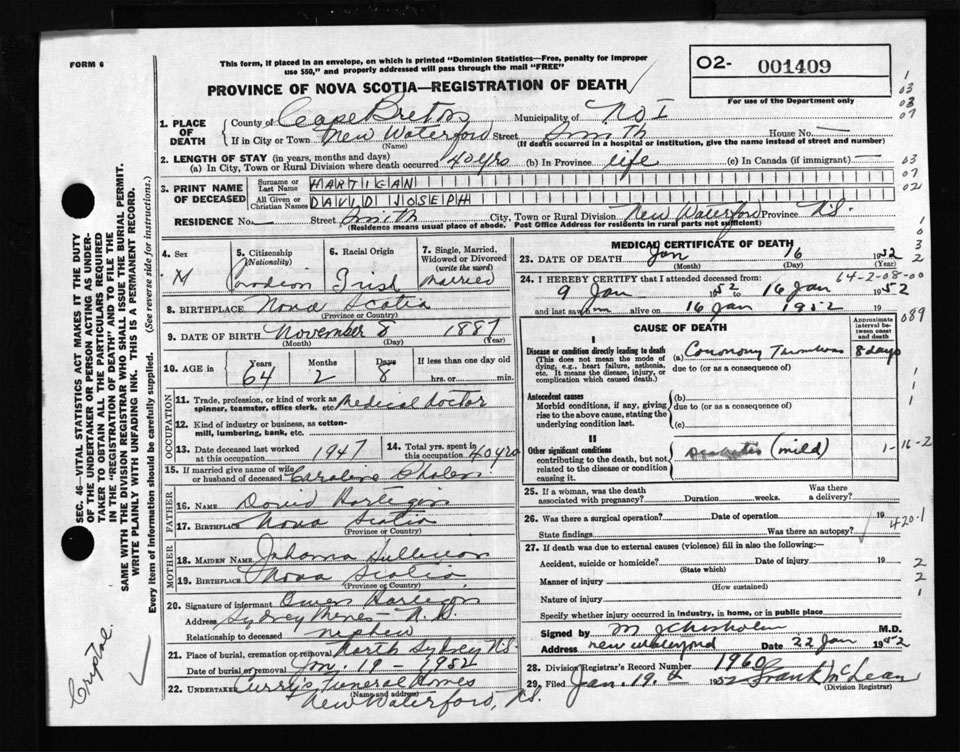 FORM 6
This form, if placed in an envelope, on which is printed "Dominion Statistics—Free, penalty for improper
use $50," and properly addressed will pass through the mail "FREE"
O2- 001409
For use of the Department only
PROVINCE OF NOVA SCOTIA—REGISTRATION OF DEATH
1. PLACE OF DEATH
County of Cape Breton Municipality of No I
If in City or Town New Waterford Street Smith House No. —
(Name) (If death occurred in a hospital or institution, give the name instead of street and number)
2. LENGTH OF STAY (in years, months and days)
(a) In City, Town or Rural Division where death occurred 40 yrs (b) In Province life (c) In Canada (if immigrant) —
3. PRINT NAME OF DECEASED
Surname or Last Name HARTIGAN
All Given or Christian Names DAVID JOSEPH
RESIDENCE No. — Street Smith City, Town or Rural Division New Waterford Province N.S.
(Residence means usual place of abode. Post Office Address for residents in rural parts not sufficient)
4. Sex M
5. Citizenship (Nationality) Canadian
6. Racial Origin Irish
7. Single, Married, Widowed or Divorced (write the word) Married
8. BIRTHPLACE Nova Scotia
(Province or Country)
9. DATE OF BIRTH November 8 1887
(Month) (Day) (Year)
10. AGE in Years 64 Months 2 Days 8 If less than one day old
hrs. or min.
OCCUPATION
11. Trade, profession, or kind of work as spinner, teamster, office clerk, etc. Medical Doctor
12. Kind of industry or business, as cotton-mill, lumbering, bank, etc.
13. Date deceased last worked at this occupation 1947
14. Total yrs. spent in this occupation 40 yrs
15. If married give name of wife or husband of deceased Caroline
FATHER
16. Name David Hartigan
17. Birthplace Nova Scotia
(Province or Country)
MOTHER
18. Maiden Name Johanna Sullivan
19. Birthplace Nova Scotia
(Province or Country)
20. Signature of informant Owen Hartigan
Address Sydney Mines N.S.
Relationship to deceased nephew
21. Place of burial, cremation or removal North Sydney N.S.
Date of burial or removal Jan. 19 - 1952
22. UNDERTAKER Curry's Funeral Homes
(Name and address)
New Waterford, N.S.
MEDICAL CERTIFICATE OF DEATH
23. DATE OF DEATH Jan 16 1952
(Month) (Day) (Year)
24. I HEREBY CERTIFY that I attended deceased from:
64-2-08-00
9 Jan 1952 to 16 Jan 1952
and last saw him alive on 16 Jan 1952
CAUSE OF DEATH
Approximate interval between onset and death
I
Disease or condition directly leading to death
(This does not mean the mode of dying, e.g., heart failure, asthenia, etc. It means the disease, injury, or complication which caused death.)
(a) Coronary Thrombosis 8 days
due to (or as a consequence of)
Antecedent causes
Morbid conditions, if any, giving rise to the above cause, stating the underlying condition last.
(b)
due to (or as a consequence of)
(c)
II
Other significant conditions
contributing to the death, but not related to the disease or condition causing it.
Diabetes (mild)
25. If a woman, was the death associated with pregnancy? Duration weeks. Was there a delivery?
26. Was there a surgical operation? Date of operation 19
State findings Was there an autopsy?
420.1
27. If death was due to external causes (violence) fill in also the following:—
Accident, suicide or homicide? Date of injury 19
(State which)
Manner of injury
(How sustained)
Nature of injury
Specify whether injury occurred in industry, in home, or in public place
Signed by M Chisholm M.D.
Address New Waterford Date 22 Jan 1952
28. Division Registrar's Record Number 1960
29. Filed Jan. 19th 1952 Frank McLean
(Division Registrar)
SEC. 46—VITAL STATISTICS ACT MAKES IT THE DUTY
OF THE UNDERTAKER OR PERSON ACTING AS UNDER-
TAKER TO OBTAIN ALL THE PARTICULARS REQUIRED
IN THE "REGISTRATION OF DEATH" AND TO FILE THE
SAME WITH THE DIVISION REGISTRAR WHO SHALL ISSUE THE BURIAL PERMIT.
WRITE PLAINLY WITH UNFADING INK. THIS IS A PERMANENT RECORD.
Every item of information should be carefully supplied. (See reverse side for instructions.)
1
03
03
07
03
07
02
089